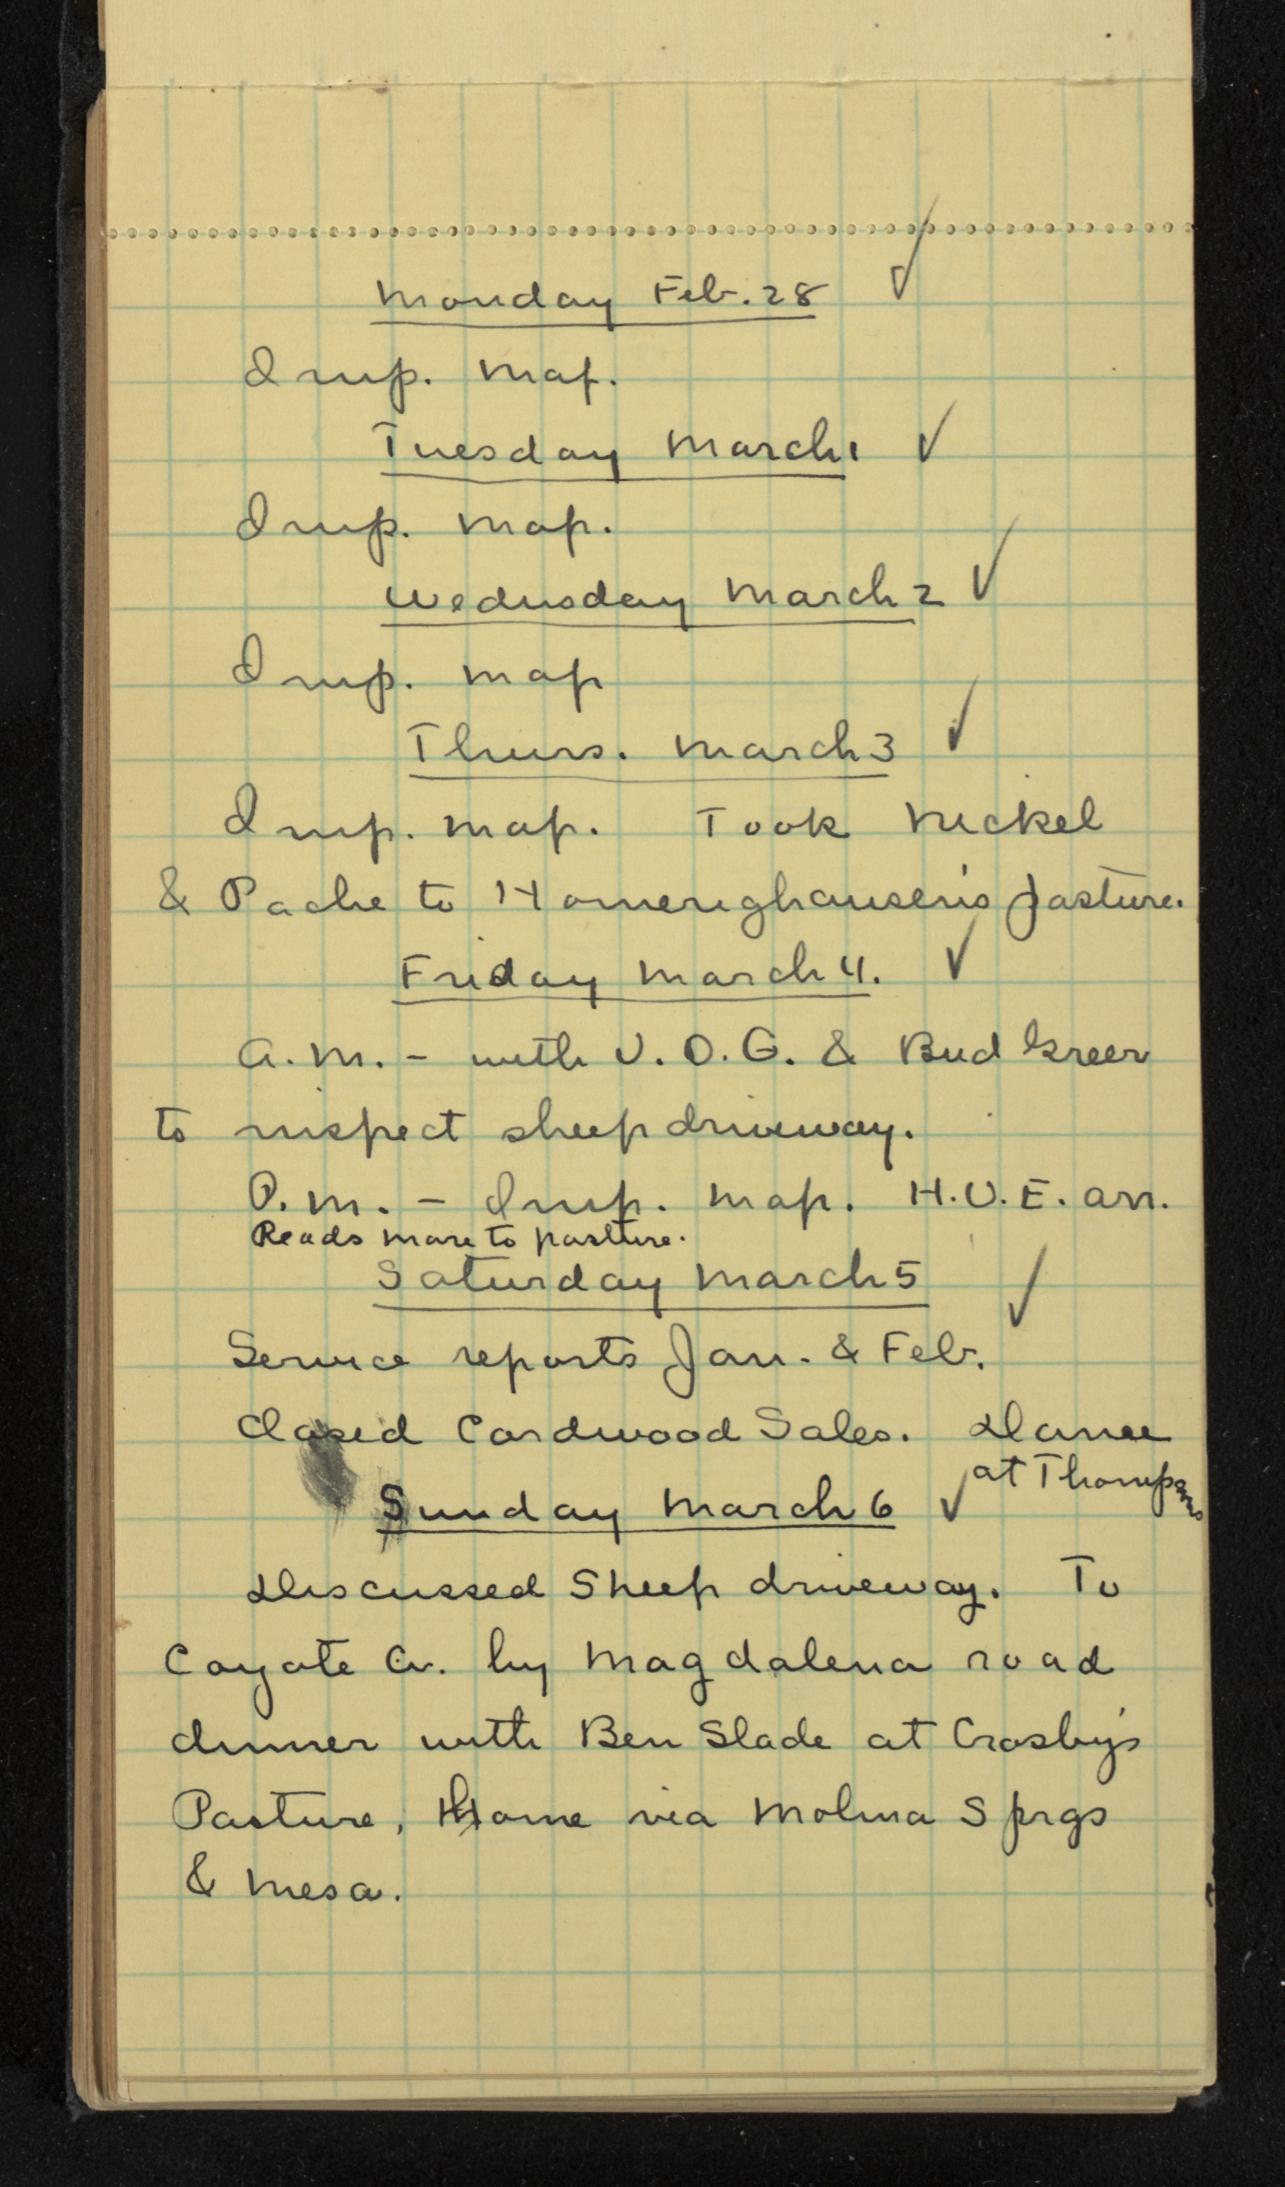 Monday Feb. 28 ✓
Imp. Map.
Tuesday March 1 ✓
Imp. Map.
Wednsday March 2 ✓
Imp. Map
Thurs. March 3 ✓
Imp. Map. Took Nickel
& Pache to Homerighausen's pasture.
Friday March 4. ✓
A.M. - with J.O.G. & Bud Greer
to inspect sheep driveway.
P.M. - Imp. Map. H.V.E. arr.
Reads mare to pasture.
Saturday March 5 ✓
Service reports Jan. & Feb.
Closed Cordwood Sales. Dance
at Thompsons
Sunday March 6 ✓
Discussed Sheep driveway. To
Coyote Cr. by Magdalena road
dinner with Ben Slade at Crosby's
Pasture, Home via Molina Sprgs
& Mesa.